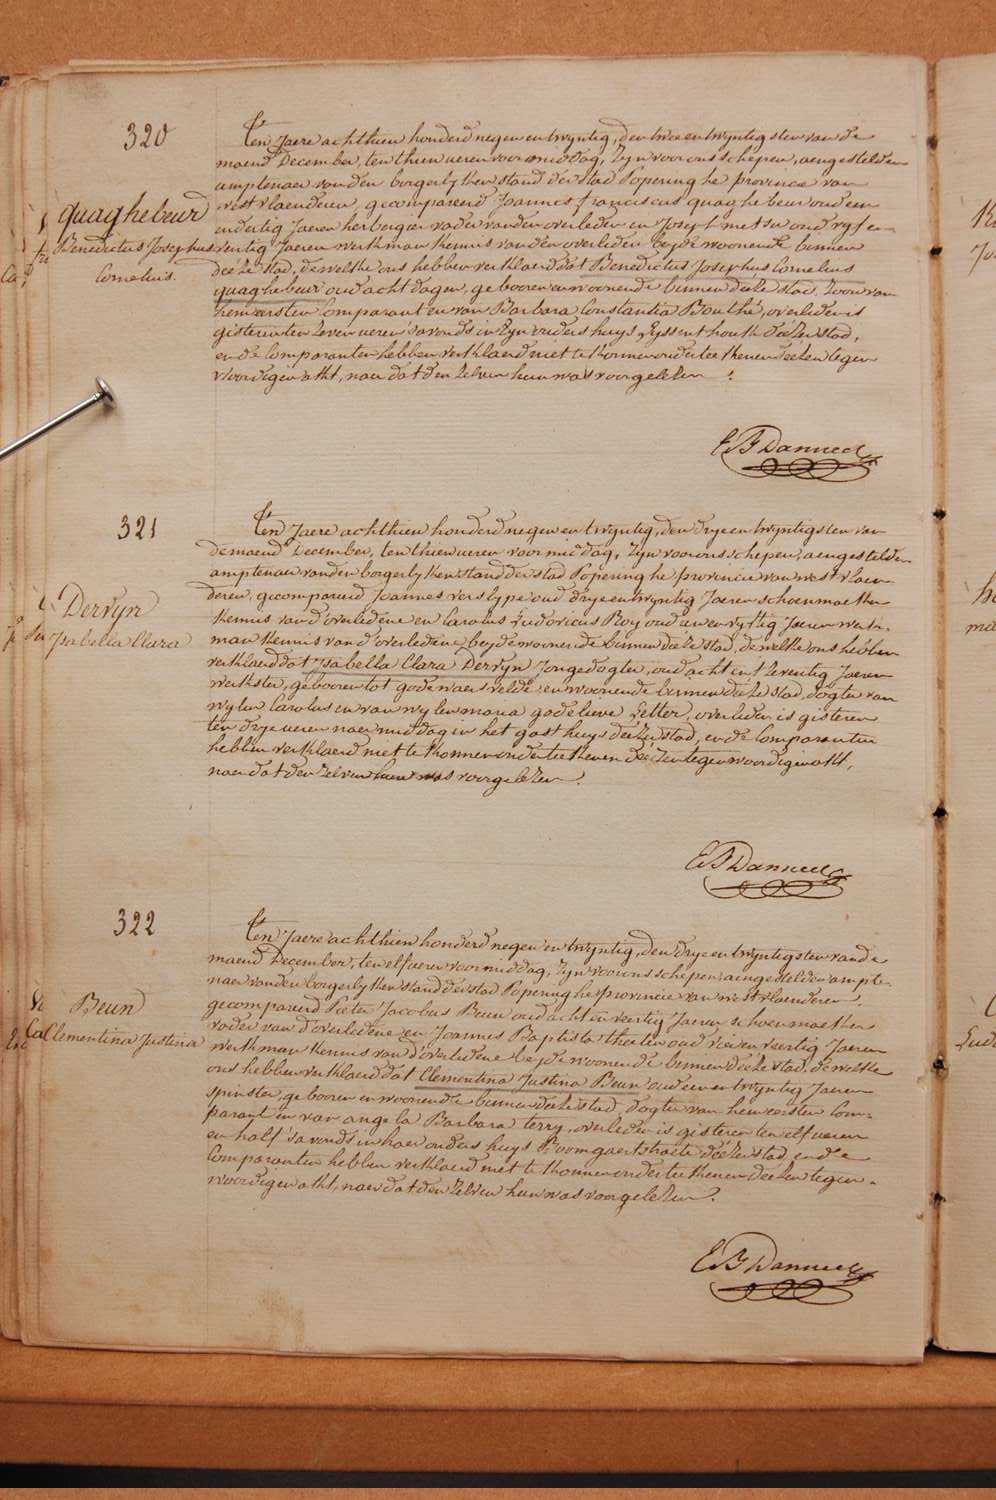 320
quaghebeur
Benedictus Josephus
Cornelius.
Ten Jaere achthien honderd negen en twyntig, den twee en twyntigsten van de
maend December, ten thien ueren voor middag, Zyn voor ons schepen, aengestelden
amptenaer van den borgerlyken stand der stad Poperinghe provincie van
west vlaenderen, gecompareerd Joannes franciscus quaghebeur oud een
en dertig Jaeren herbergier vader van den overleden en Joseph metsu oud vyf en
veertig Jaeren werkman kennis van den overleden beyde woonende binnen
deeze stad, de welke ons hebben verklaerd dat Benedictus Josephus Cornelius
quaghebeur oud acht dagen, gebooren en woonende binnen deeze stad, Zoon van
hem eersten Comparant en van Barbara Constantia Bouthé, overleden is
gisteren ten Zeven ueren s'avonds in Zyn ouders huys, Yssenthouk deezer stad,
en de Comparanten hebben verklaerd niet te konnen onderteekenen deezen tegen
woordigen akt, naer dat den Zelven hun was voorgelezen.
E B Danneel
321
Dervyn
Ysabella Clara
Ten Jaere achthien honderd negen en twyntig, den drye en twyntigsten van
de maend December, ten thien ueren voor middag, Zyn voor ons schepen, aengestelden
amptenaer van den borgerlyken stand der stad Poperinghe provincie van west vlaen
deren, gecompareerd Joannes verslype oud drye en twyntig Jaeren schoenmaeker
kennis van d'overledene en Carolus Ludovicus Roy oud een en vyftig Jaeren werk-
man kennis van d'overledene beyde woonende binnen deeze stad, de welke ons hebben
verklaerd dat Ysabella Clara Dervyn Jongedogter, oud acht en tzeventig Jaeren
werkster, gebooren tot godewaersvelde en woonende binnen deeze stad, dogter van
wylen Carolus en van wylen maria godelieve Letter, overleden is gisteren
ten drye ueren naer middag in het gasthuys deezer stad, en de Comparanten
hebben verklaerd niet te konnen onderteekenen deezen tegenwoordigen akt,
naer dat den Zelven hun was voorgelezen.
E B Danneel
322
Beun
Clementina Justina
Ten Jaere achthien honderd negen en twyntig, den drye en twyntigsten van de
maend December, ten elf ueren voor middag, Zyn voor ons schepen aengestelden ampte-
naer van den borgerlyken stand der stad Poperinghe provincie van west vlaenderen,
gecompareerd Pieter Jacobus Beun oud acht en veertig Jaeren schoenmaeker
vader van d'overledene en Joannes Baptista theeten oud vier en veertig Jaeren
werkman kennis van d'overledene beyde woonende binnen deeze stad, de welke
ons hebben verklaerd dat Clementina Justina Beun oud een en twyntig Jaeren
spinster, gebooren en woonende binnen deeze stad, dogter van hem eersten Com-
parant en van angela Barbara terry, overleden is gisteren ten elf ueren
en half s'avonds in haer ouders huys Boomgaertstraete deezer stad, en de
Comparanten hebben verklaerd niet te konnen onderteekenen deezen tegen-
woordigen akt, naer dat den Zelven hun was voorgelezen.
E B Danneel